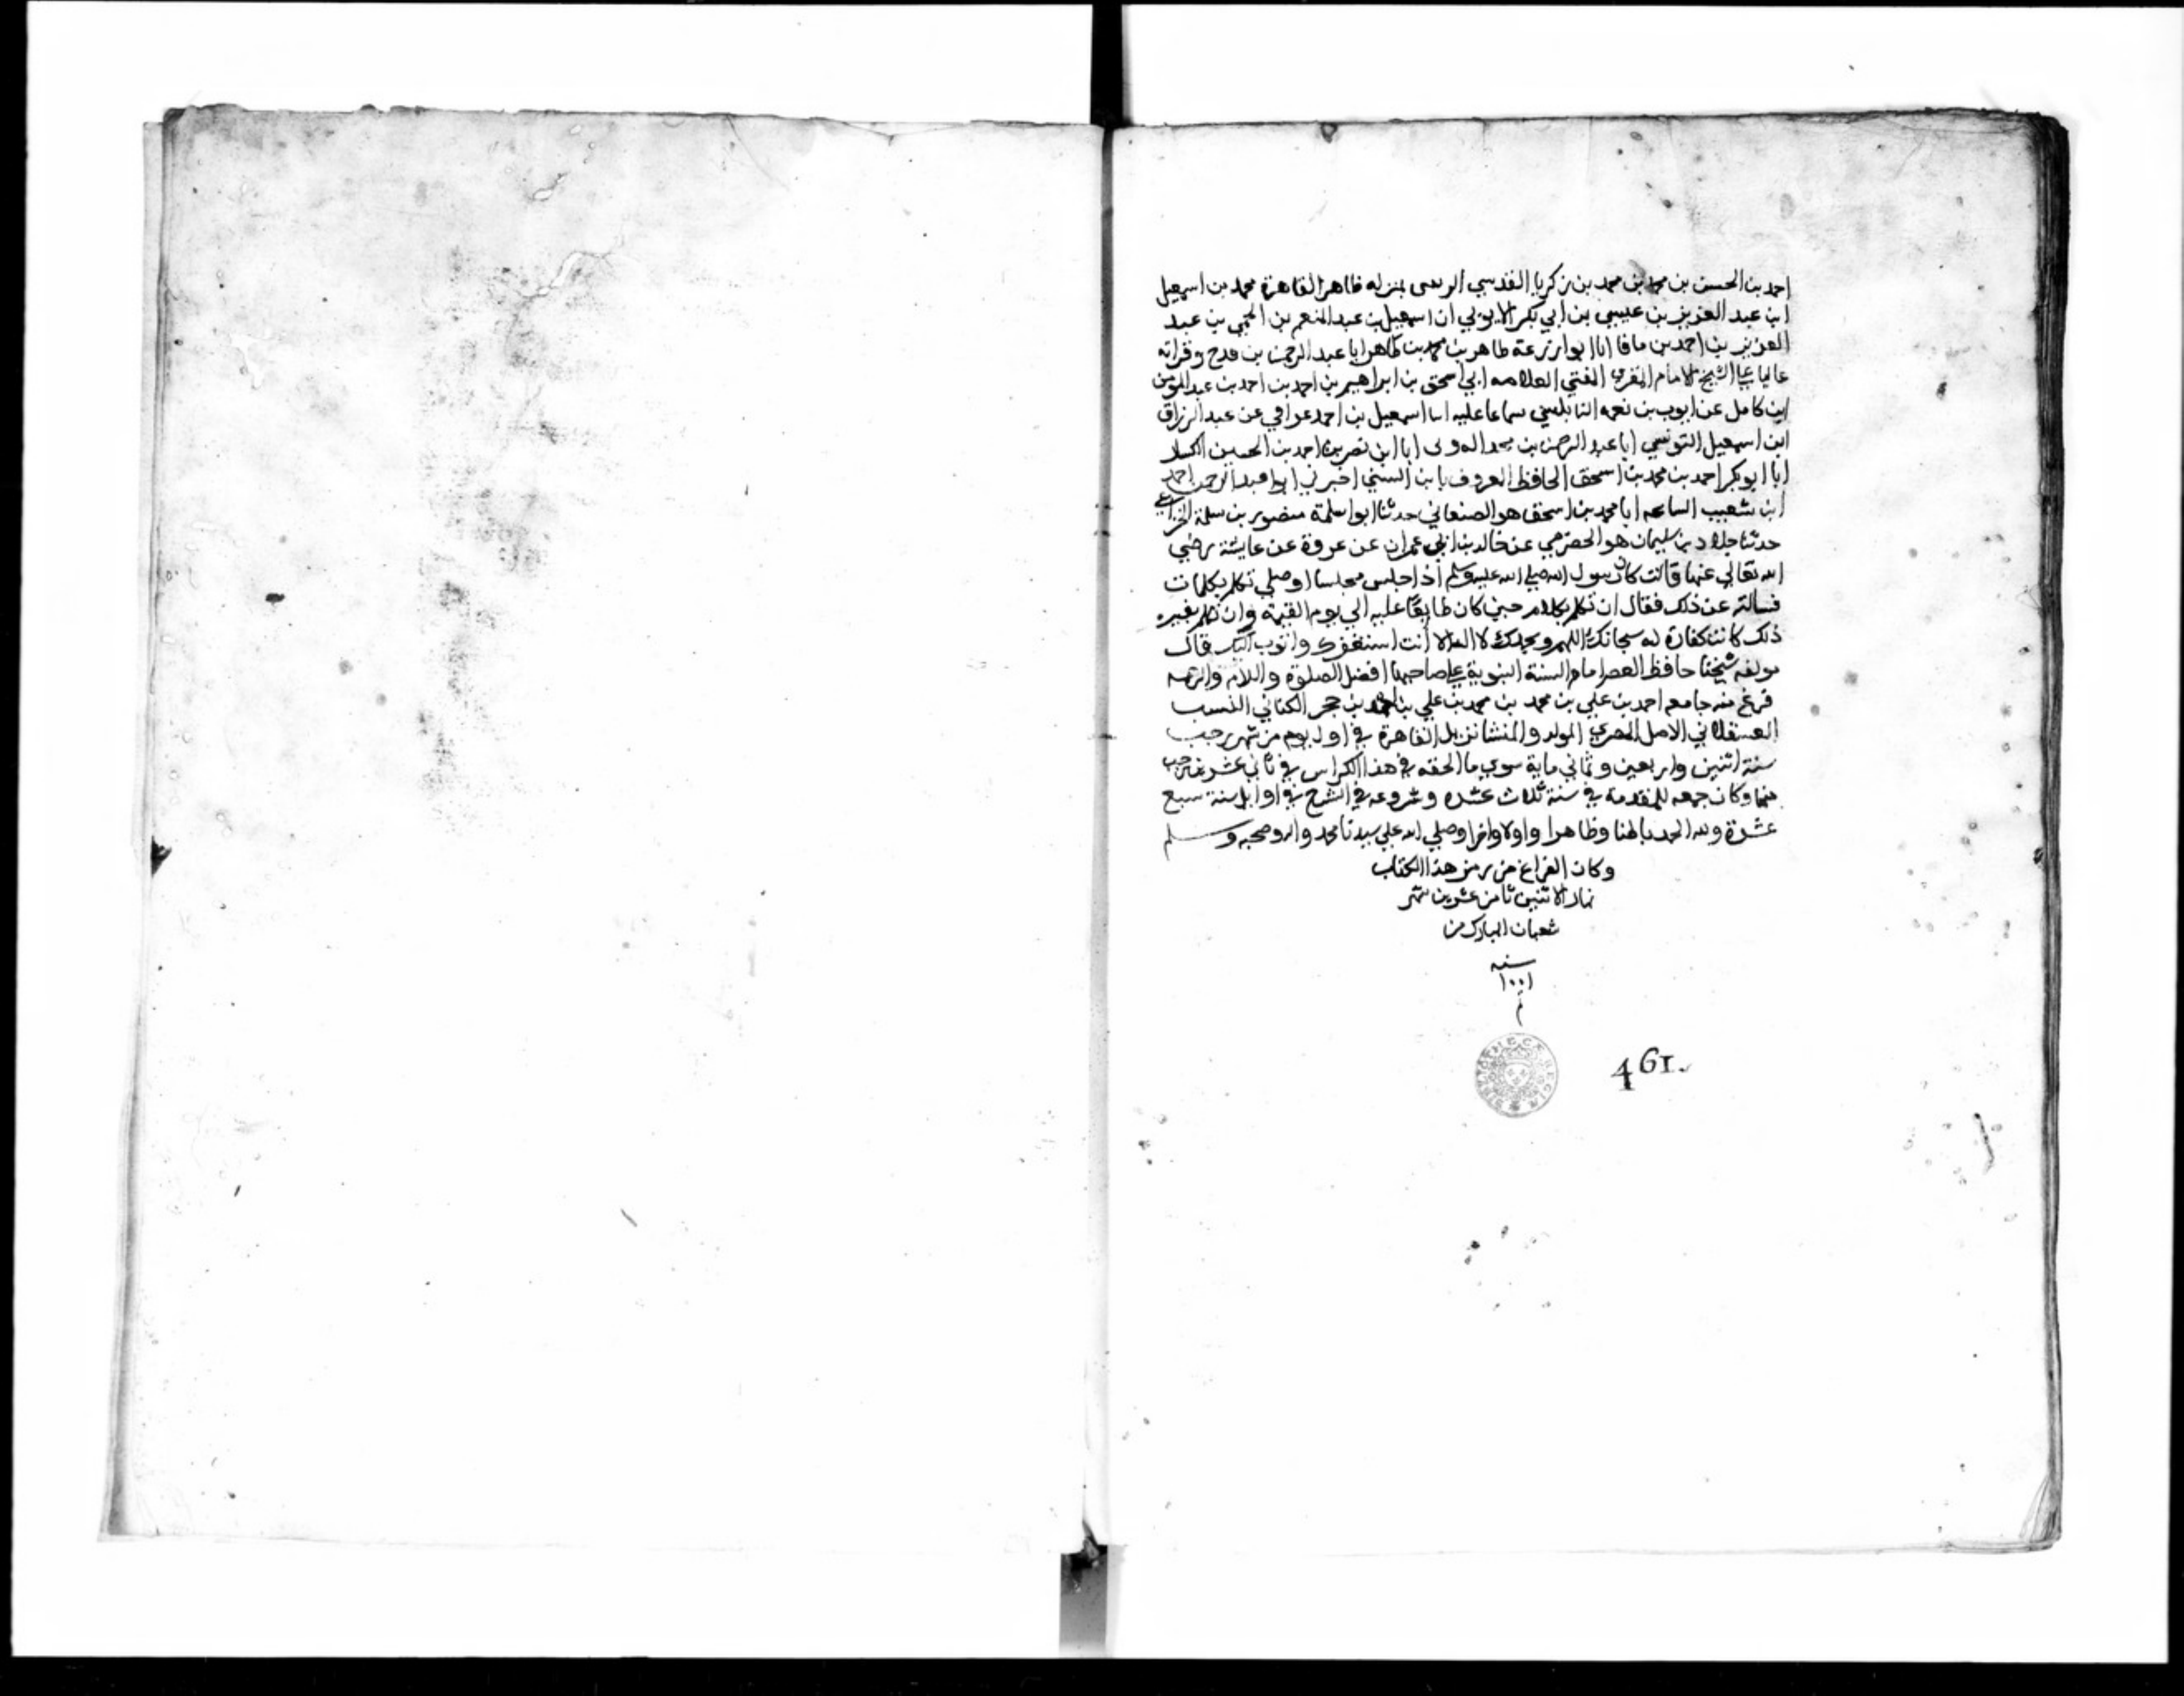 احمد بن الحسن بن محمد بن محمد بن زكريا القدسي بمنزله ظاهر القاهرة محمد بن اسمعيل
ابن عبد العزيز بن عيسي بن ابي بكر الايوبي ان اسمعيل بن عبد المنعم بن الخيمي بن عبد
العزيز بن احمد بن باقا ابا ابو زرعة طاهر بن محمد بن طاهر ابا عبد الرحمن بن وقراته
عاليا علي الشيخ الامام المقري المفتي العلامه ابي اسحق بن ابراهيم بن احمد بن احمد بن عبد المومن
ابن كامل عن ايوب بن نعمه النابلسي سماعا عليه ابا اسمعيل بن احمد عراقي عن عبد الرزاق
ابن اسمعيل ابا عبد الرحمن بن ابا ابن نصر بن احمد بن الحسين
ابا ابو بكر احمد بن محمد بن اسحق الحافظ المعروف بابن السني اخبرني ابو عبد الرحمن احمد
ابن شعيب ابا محمد بن اسحق هو الصنعاني حدثنا ابو سلمة منصور بن سلمة الخزاعي
حدثنا خلاد بن سليمان هو الحضرمي عن خالد بن ابي عمران عن عروة عن عايشة رضي
الله تعالي عنها قالت كان رسول الله صلي الله عليه وسلم اذا جلس مجلسا او صلي تكلم بكلمات
فسالته عن ذلك فقال ان تكلم بكلام حين كان طابعا عليه الي يوم القيمة وان تكلم بغير
ذلك كانت كفارة له سبحانك اللهم وبحمدك لا اله الا انت استغفرك واتوب اليك قال
مولفه شيخنا حافظ العصر امام السنة النبوية علي صاحبها افضل الصلوة والسلام
فرغ منه جامعه احمد بن علي بن محمد بن محمد بن علي بن احمد بن حجر الكناني النسب
العسقلاني الاصل المصري المولد والمنشا نزيل القاهرة في اول يوم من شهر رجب
سنة اثنين واربعين وثماني ماية سوي ما الحقه في هذا الكراس في ثاني عشرين رجب
منها وكان جمعه للمقدمة في سنة ثلاث عشره وشروعه في الشرح في اوايل سنة سبع
عشرة ولله الحمد باطنا وظاهرا واولا واخرا وصلي الله علي سيدنا محمد واله وصحبه وسلم
وكان الفراغ من هذا الكتاب
نهار الاثنين ثامن عشرين شهر
شعبان المبارك من
سنه
١٠٠١
م
461.
BIBLIOTHECÆ REGIÆ